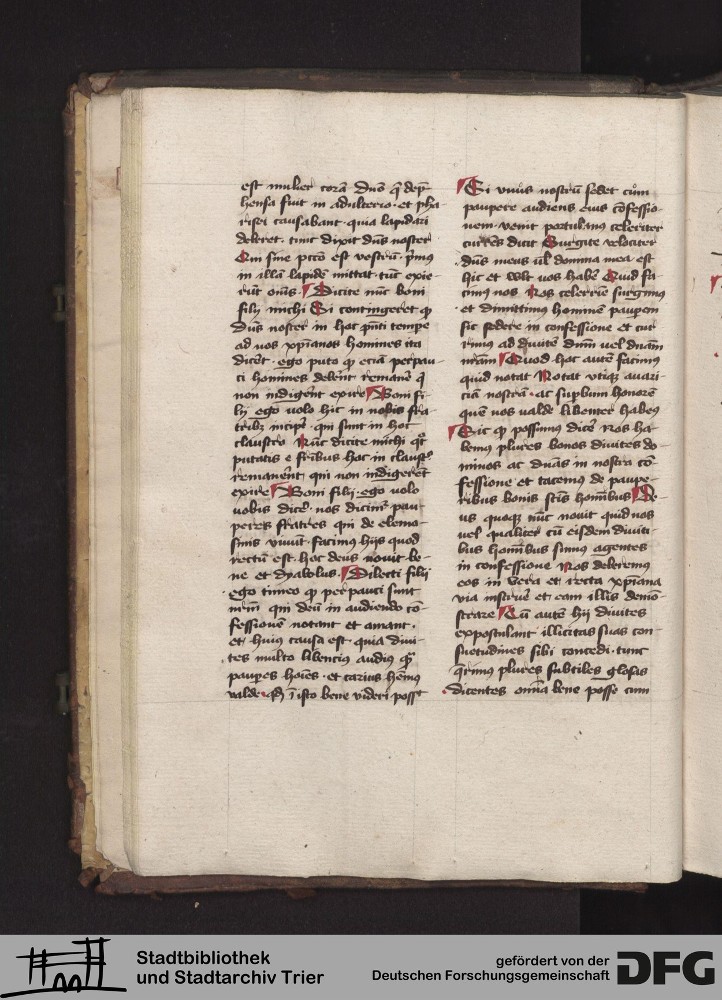 est mulier corā dno q̄ dep̄-
hensa fuit in adulterio · et pha-
risei causabant · quia lapidari
deberet · tunc dixit dn̄s noster
Qui sine pctō est vestrū · p̄mus
in illā lapidē mittat · tūc exie-
rūt om̄s · Dicite nūc boni
filij michi Si contingeret ꝙ
dn̄s noster in hoc pn̄ti tempe
ad nos xp̄ianos homines ita
dicēt · ego puto ꝙ eciā perpau-
ci homines debent remanē q̄
non indigent exire Boni fi-
lij ego volo hic in nobis fra-
tribꝫ incipe · qui sunt in hoc
claustro Nūc dicite michi qͣt
putatis e fr̄ibus hoc in claustꝰ
remanent qui non indigerēt
exire Boni filij · ego volo
vobis dice · nos dicimꝰ pau-
peres fratres qui de elemo-
sinis viuūt · facimꝰ hijs quod
rectū est · hoc deus nouit be-
ne et dyabolus · Dilecti filij
ego timeo ꝙ perpauci sunt
nr̄m qui deū in audiendo cō-
fessionē notant et amant ·
et huiꝰ causa est · quia diui-
tes multo libencius audiꝰ qͣ
paupes hoīes · et carius hēmꝰ
valde · qd̄ ī isto bene videri posst
Si vnus nostrū sedet cū
paupere audiens eius cōfessio-
nem · venit portulanꝰ celeriter
currēs dicit Surgite velociter
dn̄s meus vl̄ domina mea est
hic et vult vos habē Quid fa-
cimꝰ nos Nos celerrie surgimꝰ
et dimittimꝰ hominē paupem
sic sedere in confessione et cur-
rimꝰ ad diuitē dnm̄ vel dnam
nr̄am Quod hoc autē facimꝰ
quid notat Notat vtiqꝫ auari-
ciā nostrā · ac supbum honorē
quē nos valde libenter habemꝰ
Sic ꝙ possumꝰ dicē Nos ha-
bemꝰ plures bonos diuites do-
minos ac dnas in nostra cō-
fessione et tacemꝰ de paupe-
ribus bonis sctis hom̄ibus De-
us quoqꝫ nūc nouit quid nos
vel qualiter cū eisdem diuiti-
bus hom̄ibus simus agentes
in confessione Nos deberemꝰ
eos in vera et recta xp̄iana
via instruē et eam illis demō-
strare Cū autē hij diuites
expostulant illicitas suas con-
suetudines sibi concedi · tunc
qͥrimꝰ plures subtiles glosas
dicentes om̄ia bene posse cum
Stadtbibliothek
und Stadtarchiv Trier
gefördert von der
Deutschen Forschungsgemeinschaft
DFG